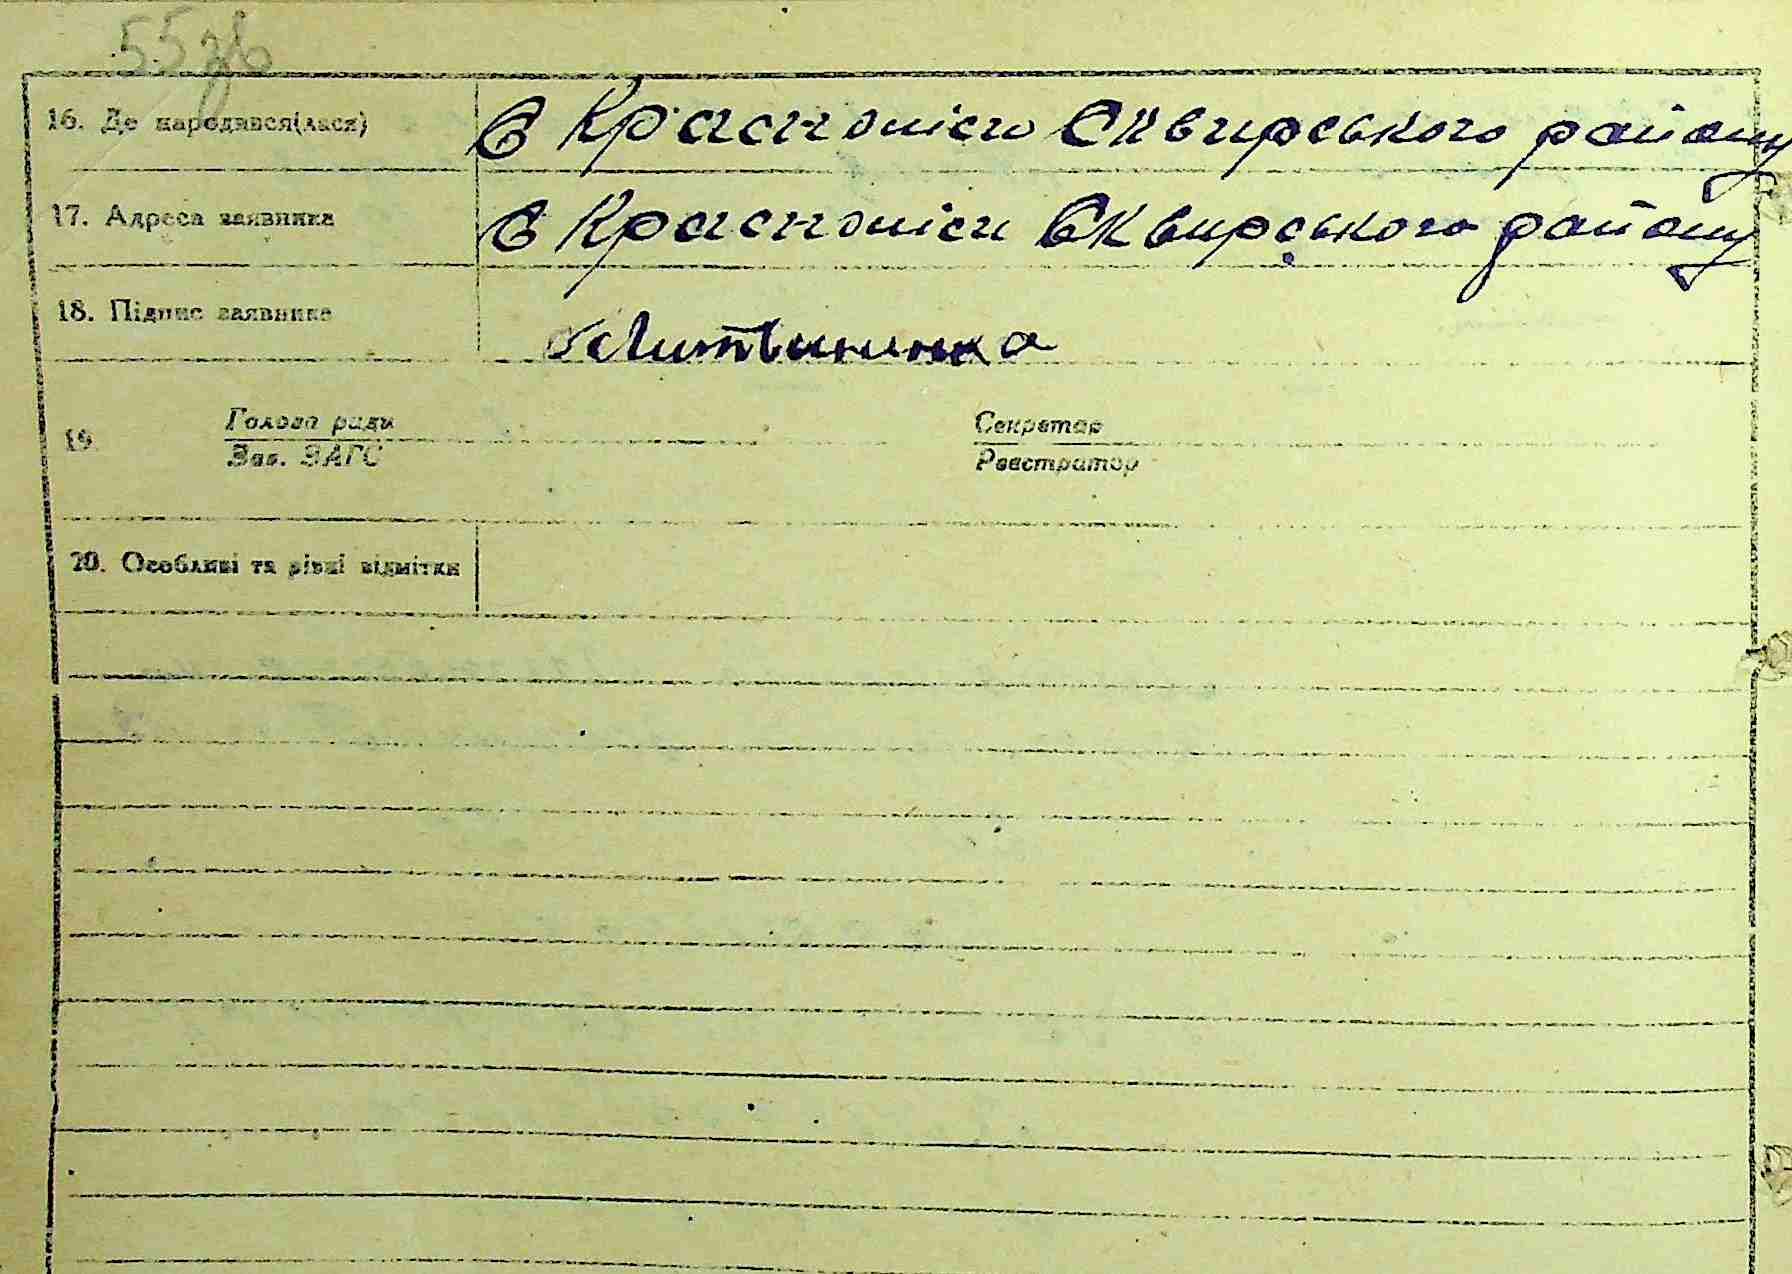 55зв
16. Де народився(лася) С Краснолісы Сквирського району
17. Адреса заявника С Краснолісы Сквирського району
18. Підпис заявника Литвиненка
19. Голова ради Секретар
Зав. ЗАГС Реєстратор
20. Особливі та різні відмітки